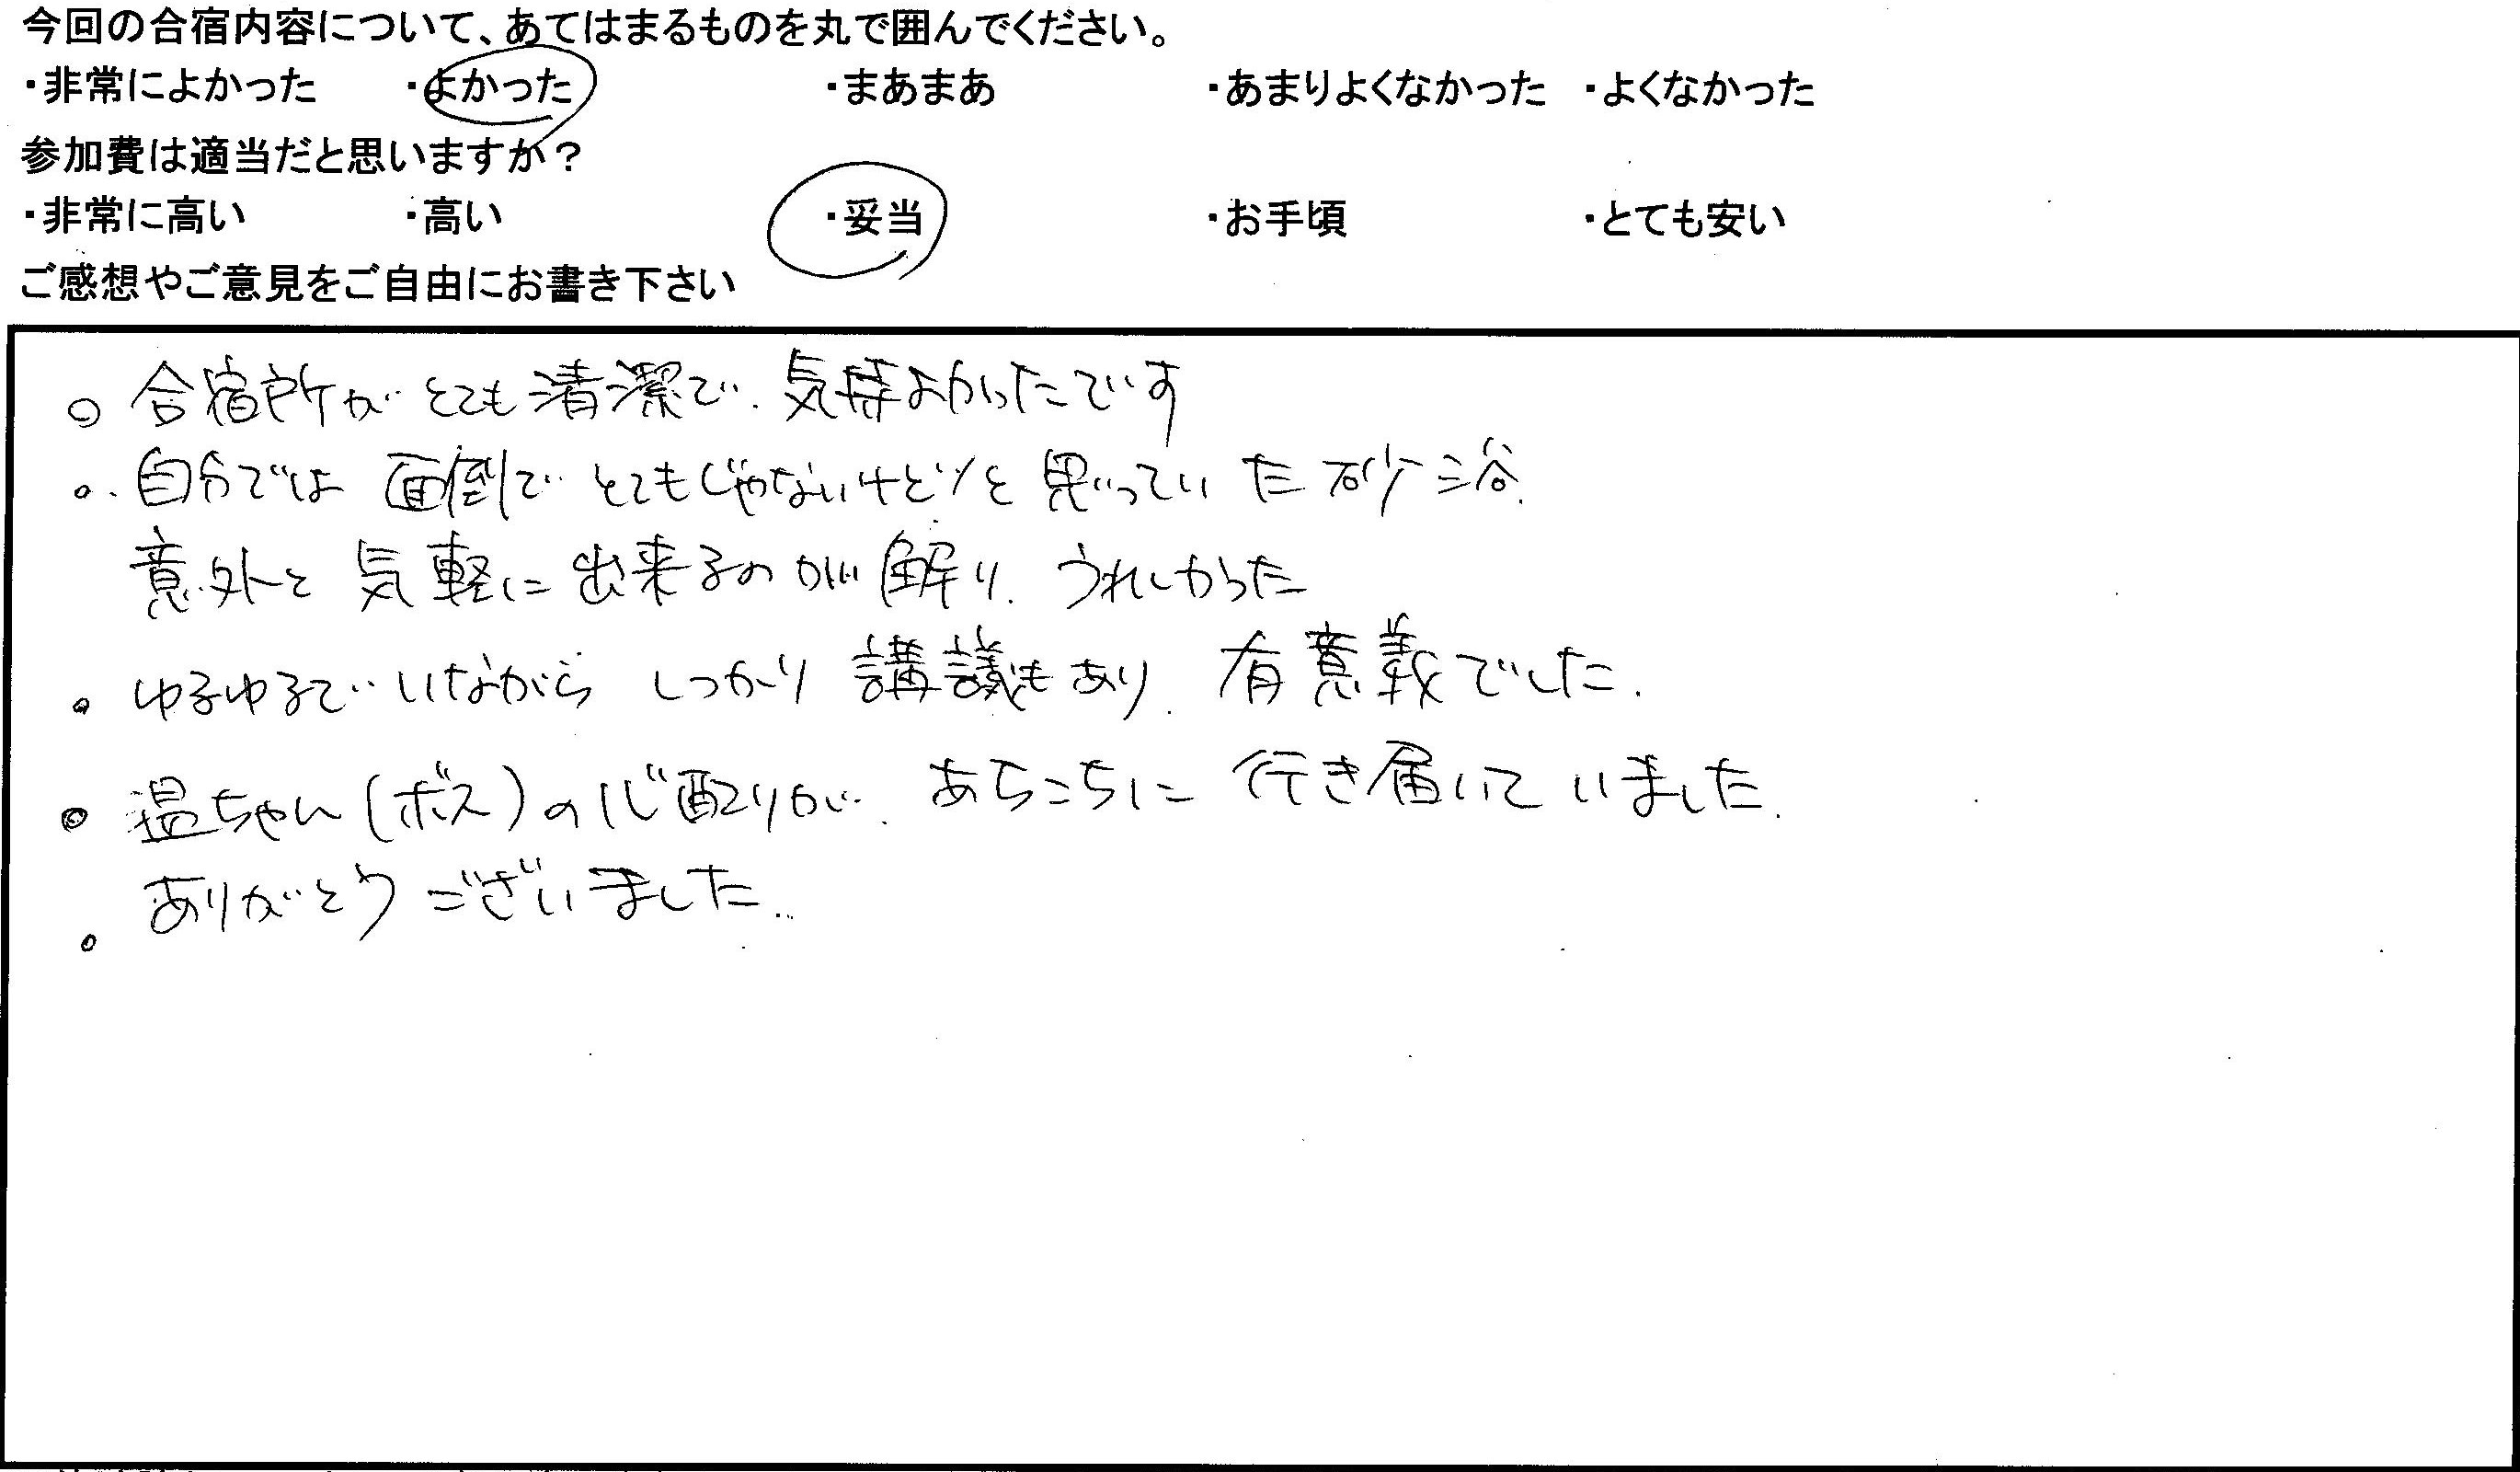 今回の合宿内容について、あてはまるものを丸で囲んでください。
・非常によかった ・よかった ・まあまあ ・あまりよくなかった ・よくなかった
参加費は適当だと思いますか？
・非常に高い ・高い ・妥当 ・お手頃 ・とても安い
ご感想やご意見をご自由にお書き下さい
○ 合宿所がとても清潔で、気持よかったです
。自分では面倒で とてもじゃないけど、と思っていた砂浴、
意外と気軽に出来るのが解り、うれしかった
。ゆるゆるでいながら しっかり講議もあり、有意義でした。
。温ちゃん(ボス)の心配りが、あちこちに行き届いていました。
。ありがとうございました。